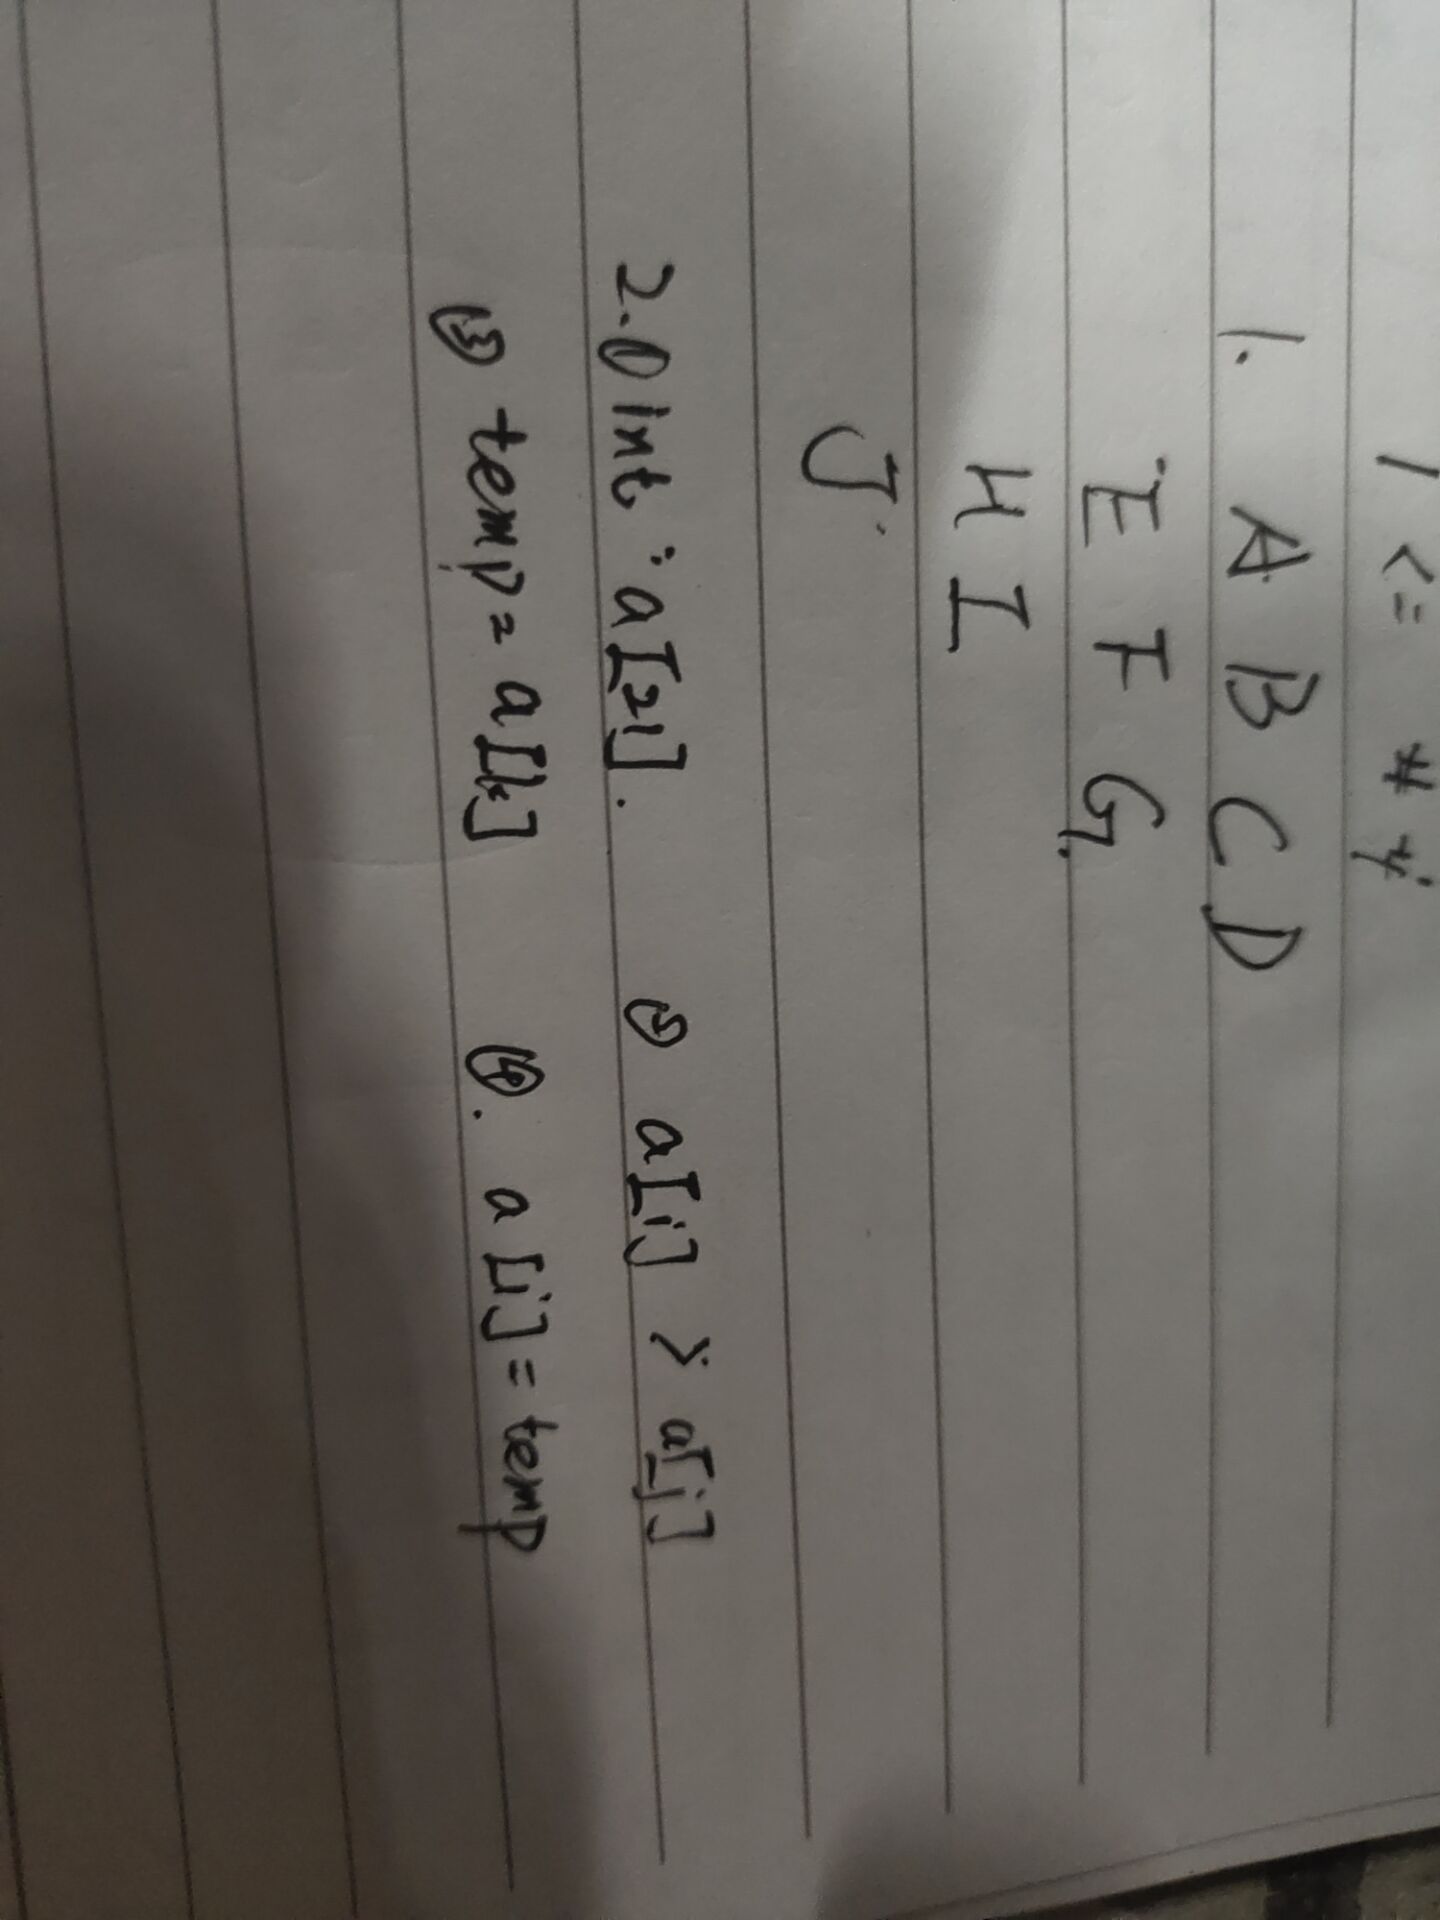 1 <= # y
1. A B C D
E F G.
H I
J
2.① int a[21]. ② a[i] > a[j]
③ temp = a[k] ④. a[i] = temp